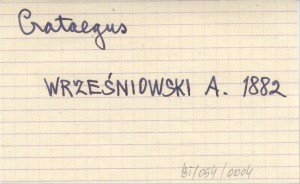 Crataegus
WRZEŚNIOWSKI A. 1882
BI/094/0004